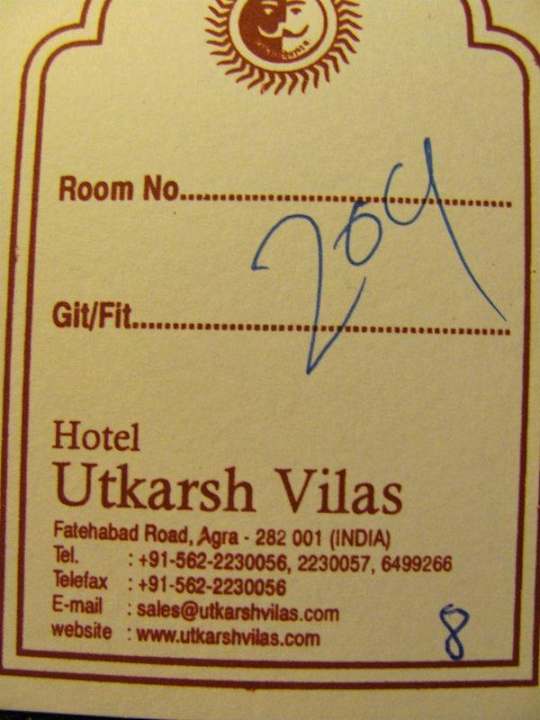 Room No.......................................................
204
Git/Fit.............................................................
Hotel
Utkarsh Vilas
Fatehabad Road, Agra - 282 001 (INDIA)
Tel. : +91-562-2230056, 2230057, 6499266
Telefax : +91-562-2230056
E-mail : sales@utkarshvilas.com
website : www.utkarshvilas.com
8